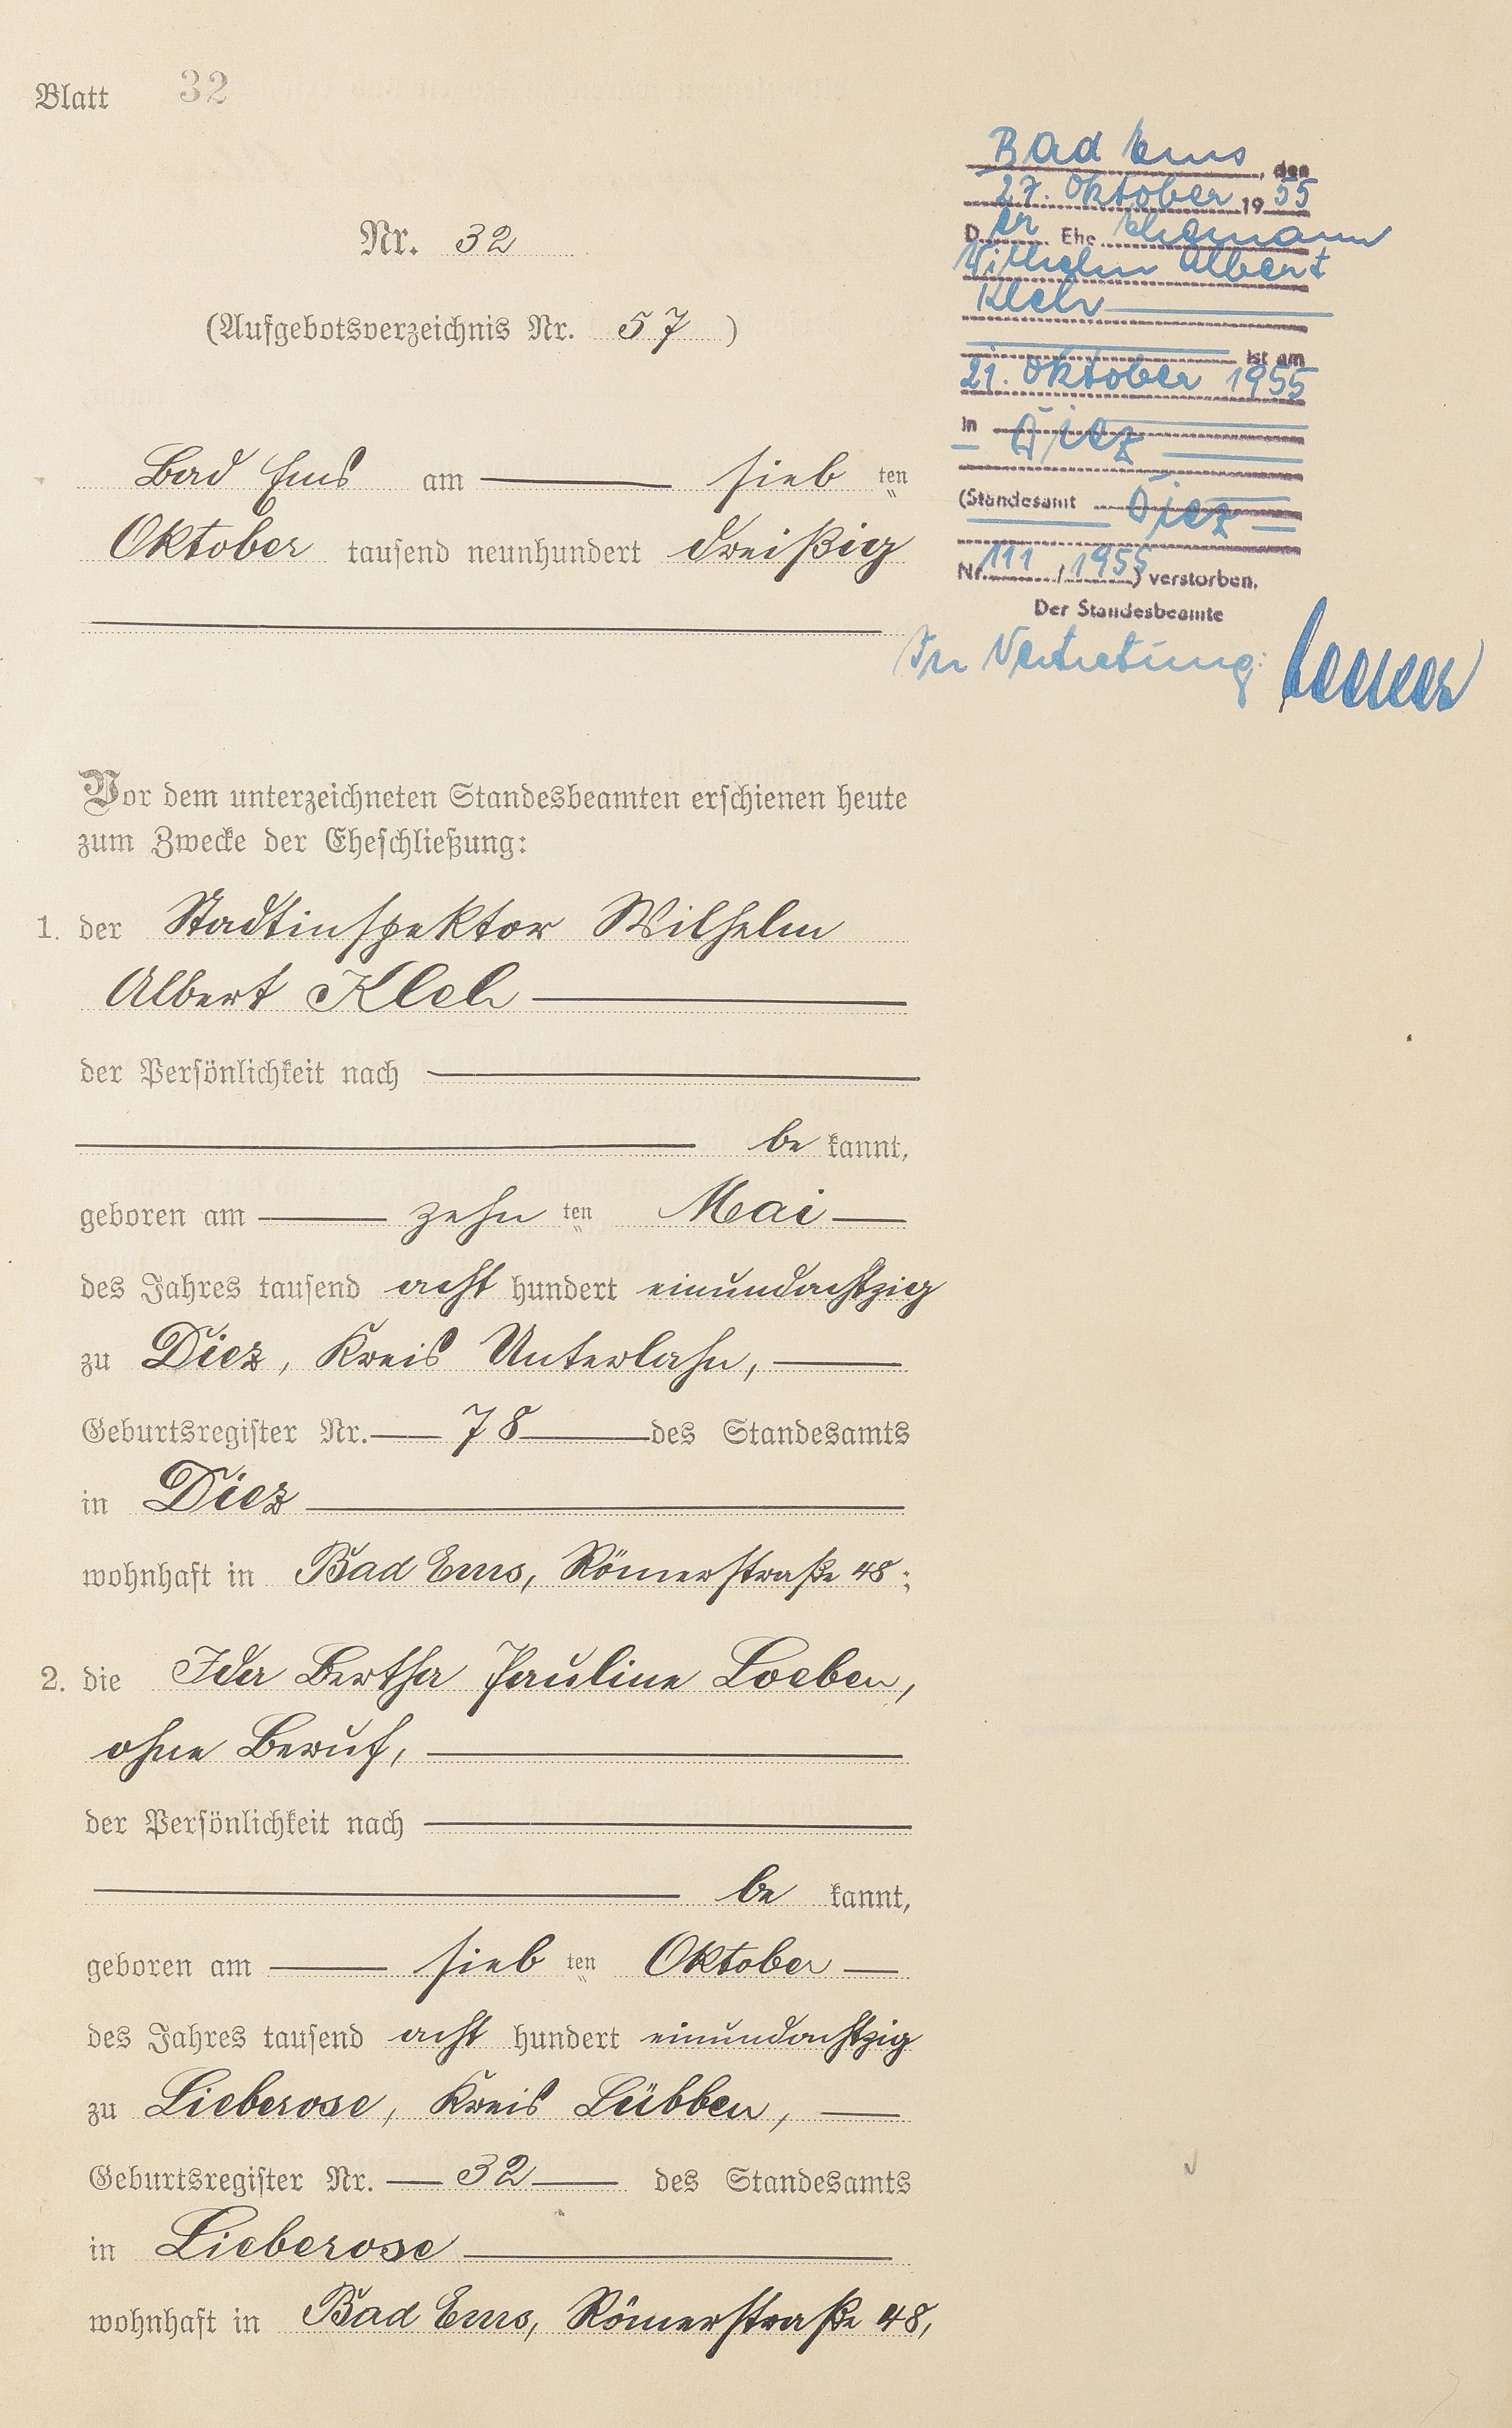 Blatt 32
Nr. 32
(Aufgebotsverzeichnis Nr. 57)
Bad Ems am sieb ten
Oktober tausend neunhundert dreißig
Bad Ems, den
27. Oktober 1955
Der Ehe Ehemann
Wilhelm Albert
Kleh
ist am
21. Oktober 1955
in Diez
(Standesamt Diez
Nr. 111 / 1955) verstorben.
Der Standesbeamte
In Vertretung:
Vor dem unterzeichneten Standesbeamten erschienen heute
zum Zwecke der Eheschließung:
1. der Stadtinspektor Wilhelm
Albert Kleh
der Persönlichkeit nach
be kannt,
geboren am zehn ten Mai
des Jahres tausend acht hundert einundachtzig
zu Diez, Kreis Unterlahn,
Geburtsregister Nr. 78 des Standesamts
in Diez
wohnhaft in Bad Ems, Römerstraße 48;
2. die Ida Bertha Pauline Loeben,
ohne Beruf,
der Persönlichkeit nach
be kannt,
geboren am sieb ten Oktober
des Jahres tausend acht hundert einundachtzig
zu Lieberose, Kreis Lübben,
Geburtsregister Nr. 32 des Standesamts
in Lieberose
wohnhaft in Bad Ems, Römerstraße 48,